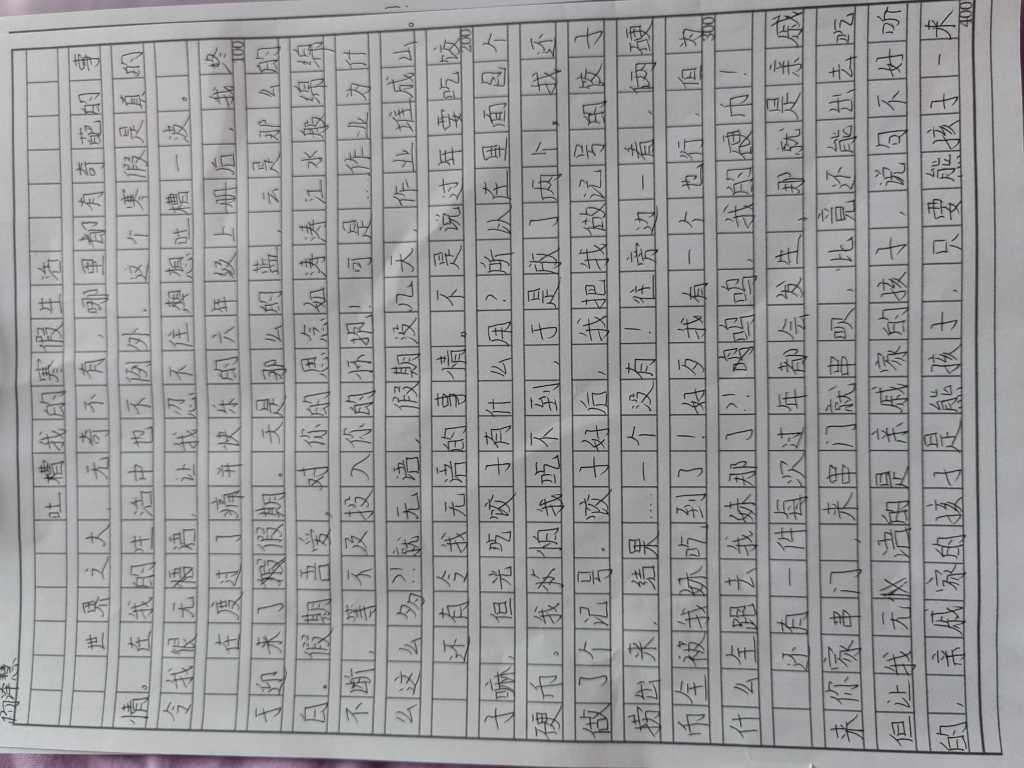 吐槽我的寒假生活
世界之大，无奇不有，哪里都有奇葩的事
情。在我的生活中也不例外，这个寒假是真的
令我很无语，让我忍不住想想吐槽一波。
在度过了痛并快乐的六年级上册后，我终
于迎来了假期。天是那么的蓝，云是那么的
白。假期吾爱，对你的思念如涛涛江水般绵绵
不断，等不及投入你的怀抱！可是…作业为什
么这么多?!就无语，假期没几天，作业堆成山
还有令我无语的事情。不是说过年要吃饺
子嘛，但光吃饺子有什么用？所以在里面包个
硬币。我水怕我吃不到，于是放了两个，我还
做了个记号。饺子好后，我把我做记号的饺子
捞出来，结果……一个没有！往旁边一看，两硬
币全被我妹吃到了！好歹我有一个也行，但为
什么全跑去我妹那了?!呜呜呜，我的硬币！
还有一件每次过年都会发生，那就是亲戚
来你家串门，来串门就串呗，比竟还能出去吃
但让我无语的是亲戚家的孩子，说句不好听
的，亲戚家的孩子是熊孩子，只要熊孩子一来
100
200
300
400